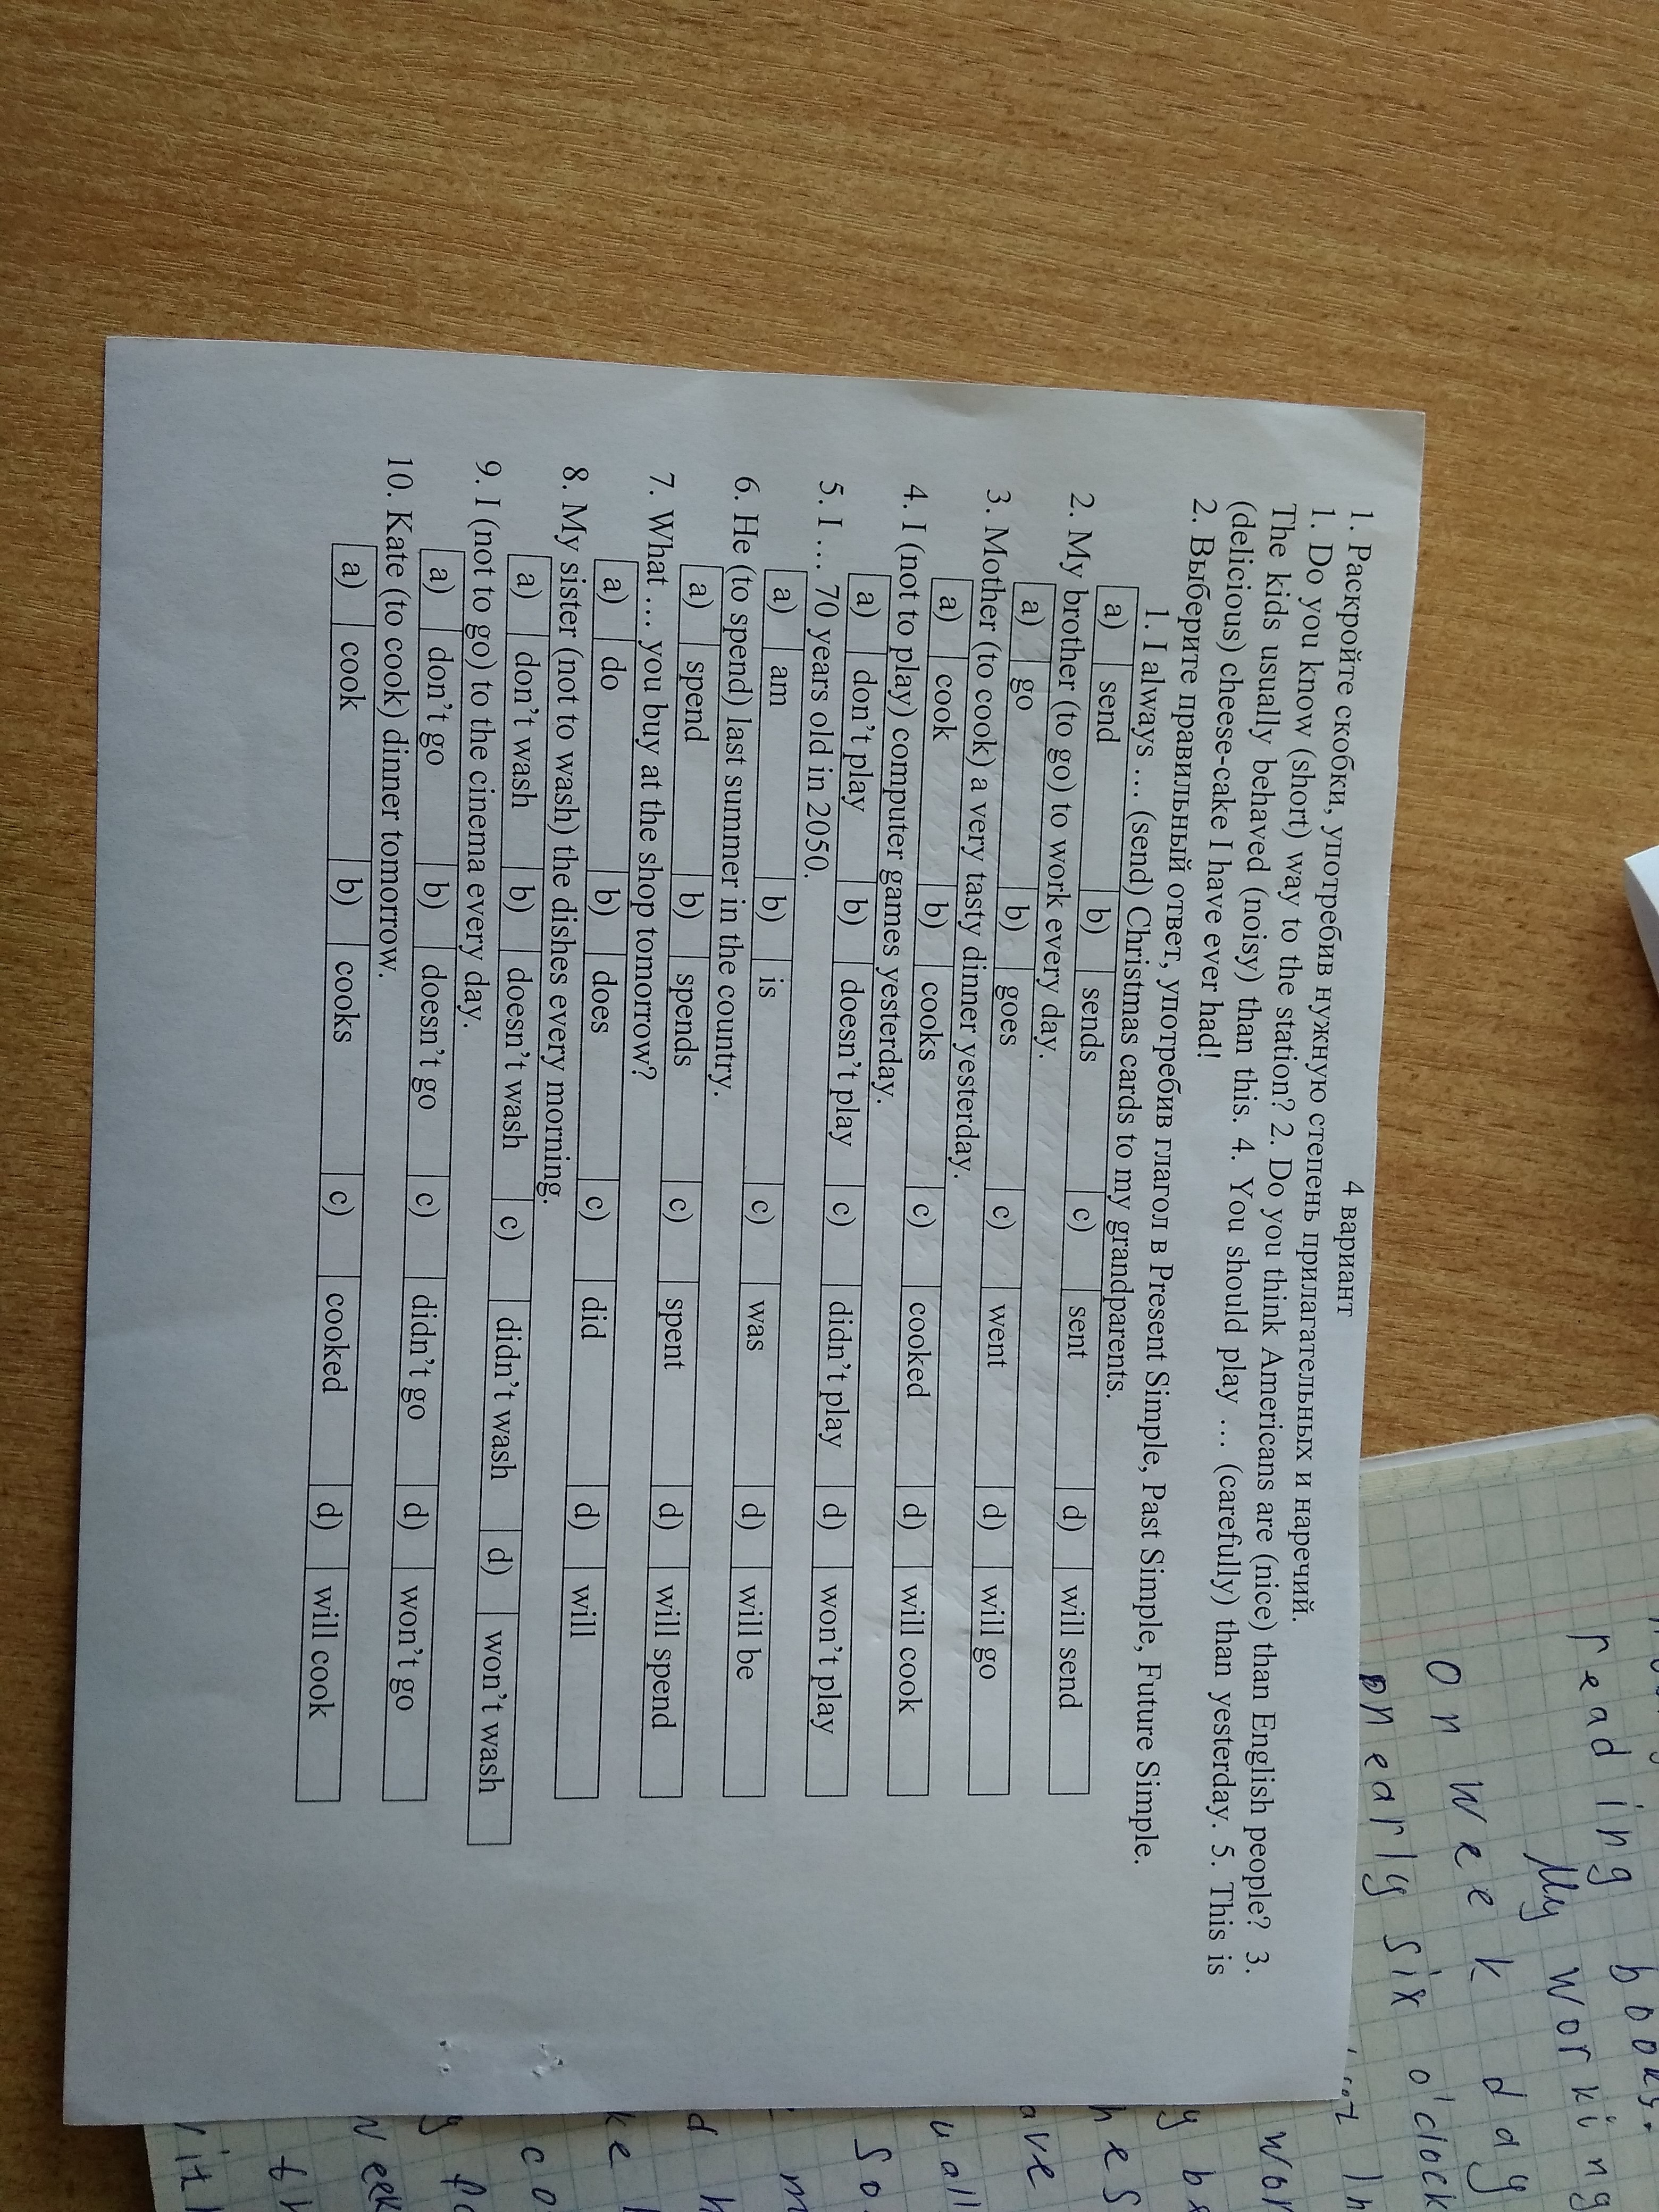 4 вариант
1. Раскройте скобки, употребив нужную степень прилагательных и наречий.
1. Do you know (short) way to the station? 2. Do you think Americans are (nice) than English people? 3.
The kids usually behaved (noisy) than this. 4. You should play … (carefully) than yesterday. 5. This is
(delicious) cheese-cake I have ever had!
2. Выберите правильный ответ, употребив глагол в Present Simple, Past Simple, Future Simple.
1. I always … (send) Christmas cards to my grandparents.
a) send b) sends c) sent d) will send
2. My brother (to go) to work every day.
a) go b) goes c) went d) will go
3. Mother (to cook) a very tasty dinner yesterday.
a) cook b) cooks c) cooked d) will cook
4. I (not to play) computer games yesterday.
a) don't play b) doesn't play c) didn't play d) won't play
5. I … 70 years old in 2050.
a) am b) is c) was d) will be
6. He (to spend) last summer in the country.
a) spend b) spends c) spent d) will spend
7. What … you buy at the shop tomorrow?
a) do b) does c) did d) will
8. My sister (not to wash) the dishes every morning.
a) don't wash b) doesn't wash c) didn't wash d) won't wash
9. I (not to go) to the cinema every day.
a) don't go b) doesn't go c) didn't go d) won't go
10. Kate (to cook) dinner tomorrow.
a) cook b) cooks c) cooked d) will cook
reading books.
My working
On week day
early six o'clock